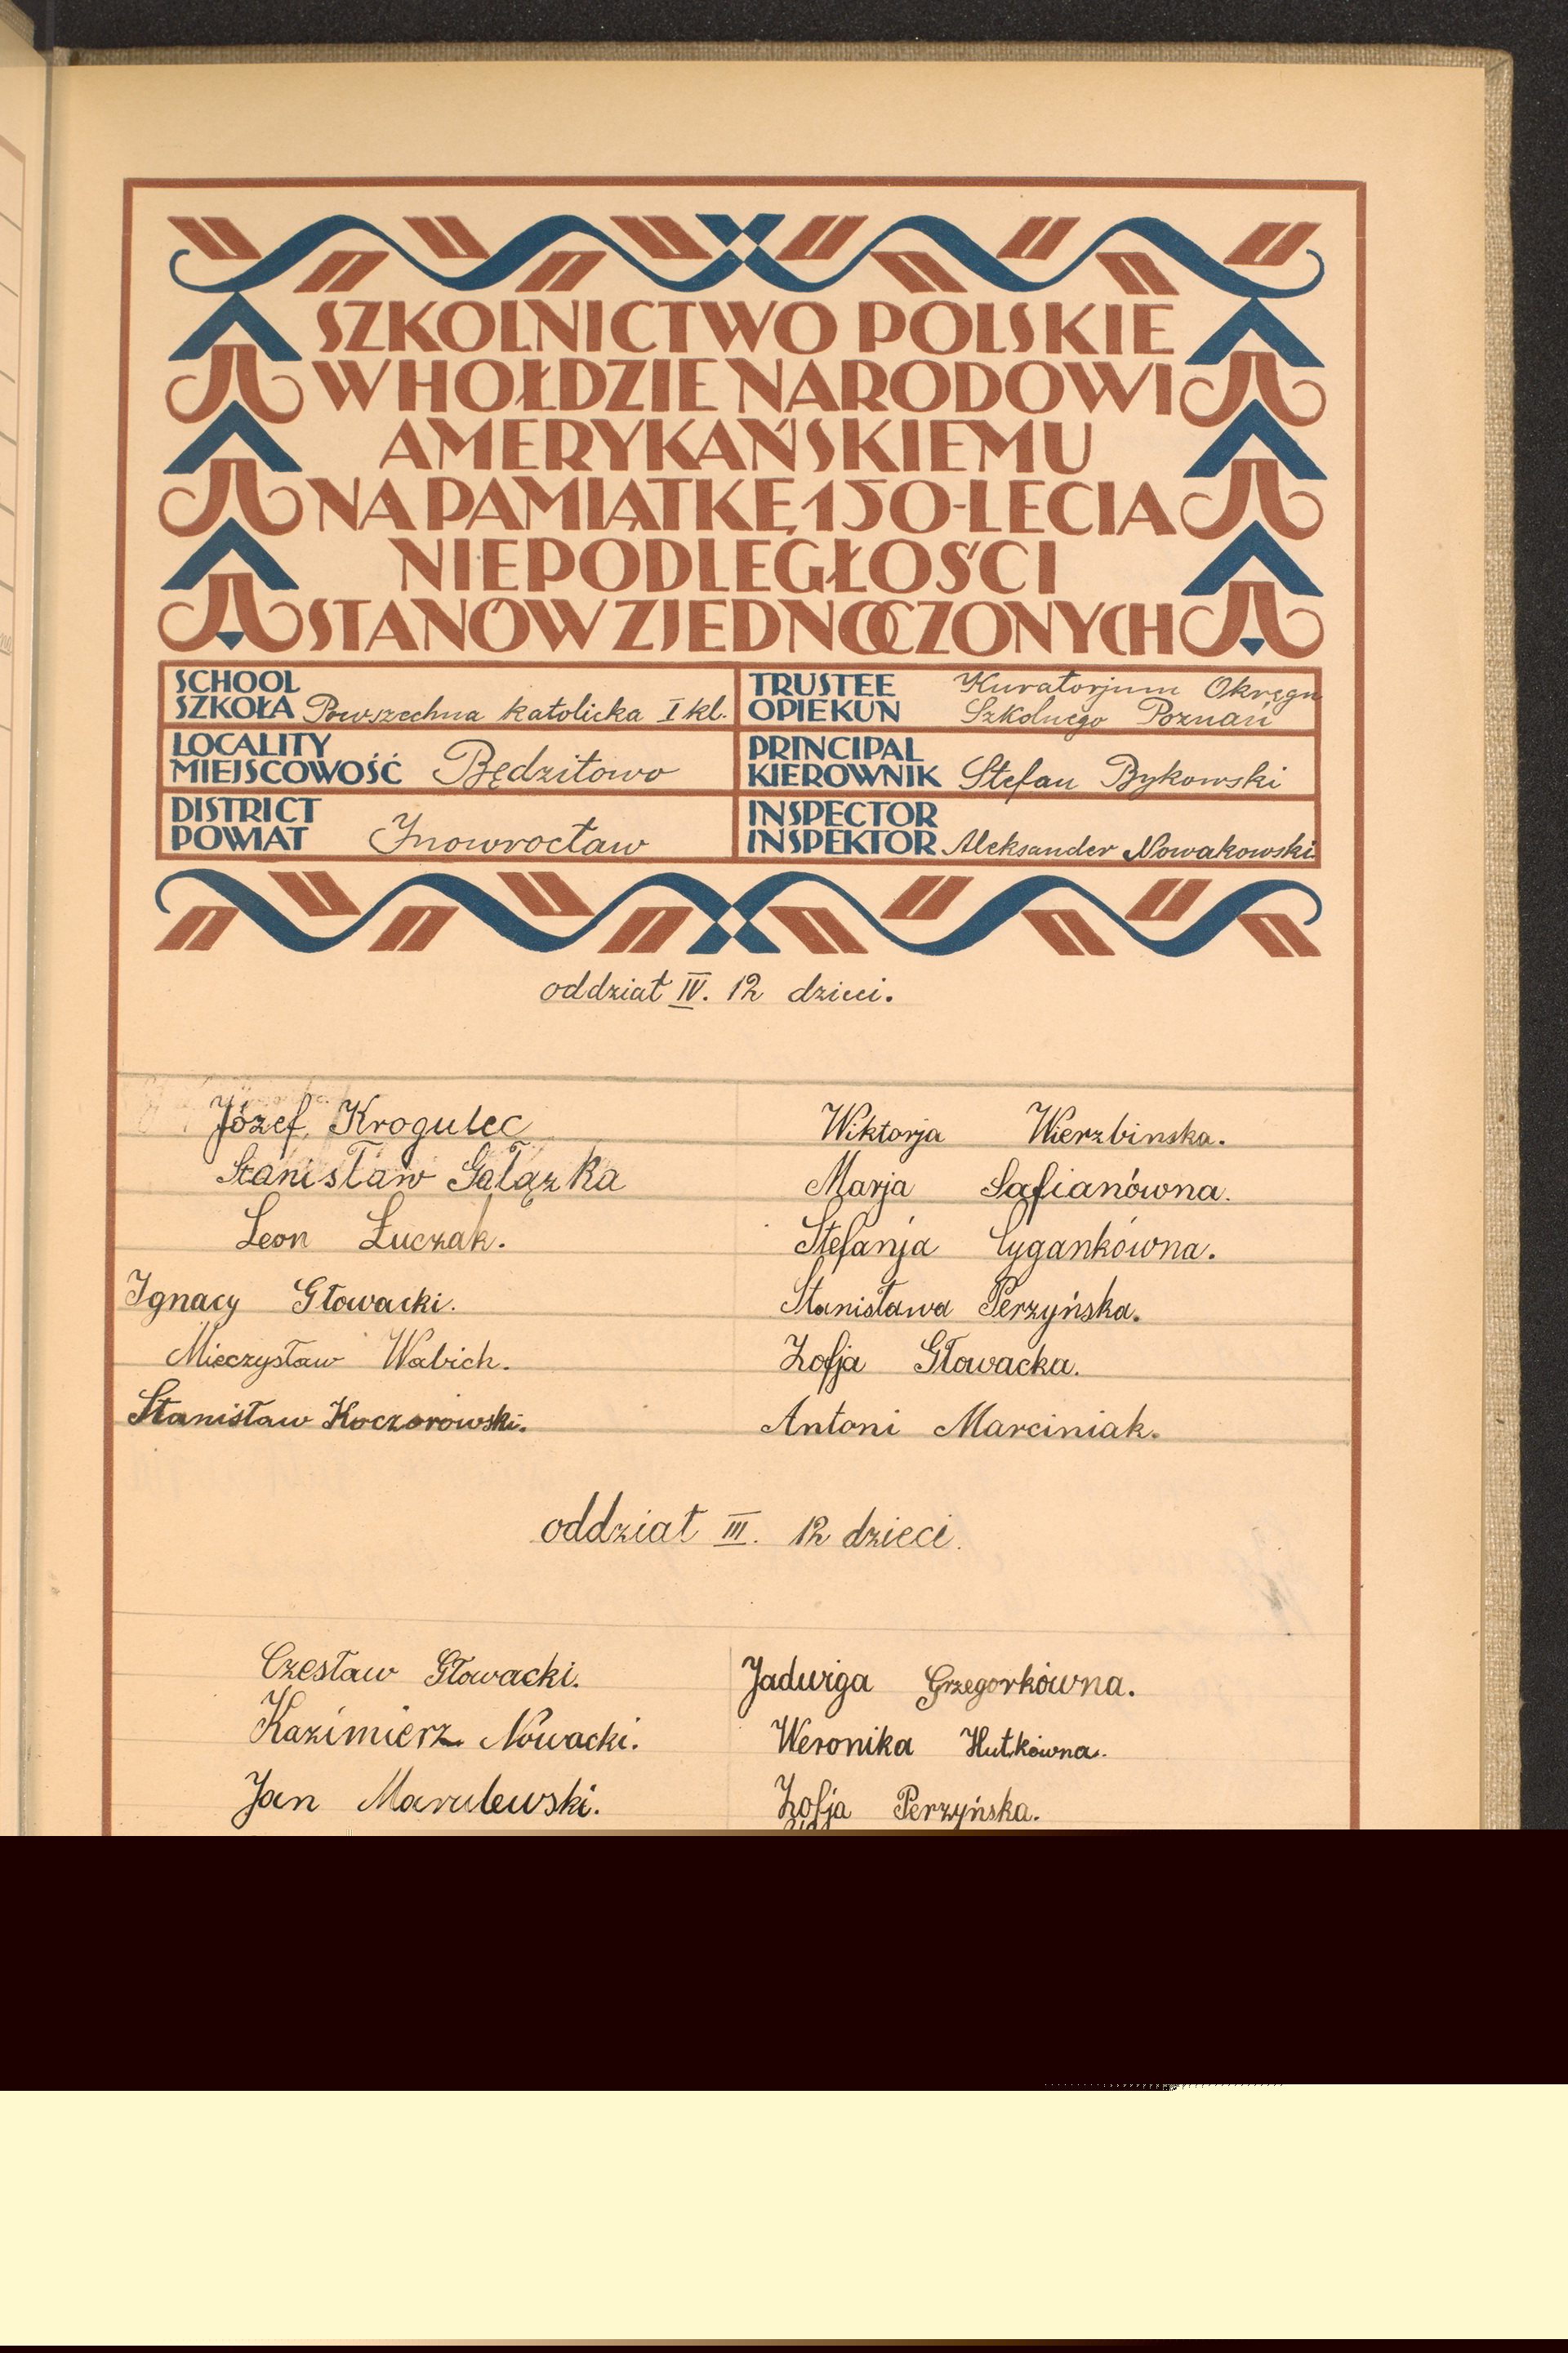 SZKOLNICTWO POLSKIE
W HOŁDZIE NARODOWI
AMERYKAŃSKIEMU
NA PAMIĄTKĘ 150-LECIA
NIEPODLEGŁOŚCI
STANÓW ZJEDNOCZONYCH
SCHOOL
SZKOŁA Powszechna katolicka I kl.
TRUSTEE Kuratorjum Okręgu
OPIEKUN Szkolnego Poznań
LOCALITY
MIEJSCOWOŚĆ Będzitowo
PRINCIPAL
KIEROWNIK Stefan Bykowski
DISTRICT
POWIAT Inowrocław
INSPECTOR
INSPEKTOR Aleksander Nowakowski
oddział IV. 12 dzieci.
Józef Krogulec
Stanisław Gałązka
Leon Łuczak.
Ignacy Głowacki.
Mieczysław Wabich.
Stanisław Koczorowski.
Wiktorja Wierzbinska.
Marja Safianówna.
Stefanja Cygankówna.
Stanisława Perzyńska.
Zofja Głowacka.
Antoni Marciniak.
oddział III. 12 dzieci.
Czesław Głowacki.
Kazimierz Nowacki.
Jan Marulewski.
Jadwiga Grzegorkówna.
Weronika Hutkówna.
Zofja Perzyńska.